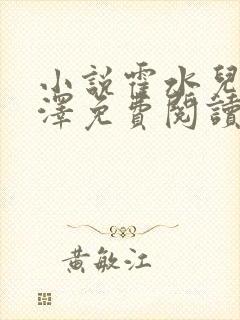 小說霍水兒
澤免費閱讀
黃敏江